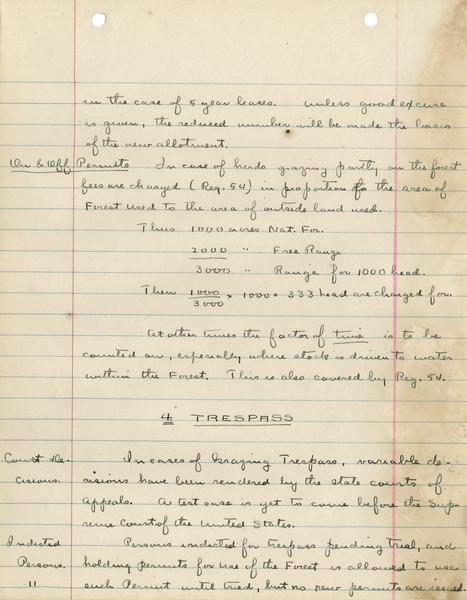 in the case of 5 year leases. Unless good excuse
is given, the reduced number will be made the basis
of the new allotment.
On & Off Permits In case of herds grazing partly on the forest
fees are charged (Reg. 54) in proportion to the area of
Forest used to the area of outside land used.
Thus 1000 acres Nat. For.
2000 " Free Range
3000 " Range for 1000 head.
Then 1000/3000 × 1000 = 333 head are charged for.
At other times the factor of time is to be
counted on, especially where stock is driven to water
within the Forest. This is also covered by Reg. 54.
4 TRESPASS
Court De- In cases of Grazing Trespass, variable de-
cisions. cisions have been rendered by the state courts of
Appeals. A test case is yet to come before the Sup-
reme Court of the United States.
Indicted Persons indicted for trespass pending trial, and
Persons. holding permits for use of the Forest is allowed to use
" such Permit until tried, but no new permits are issued